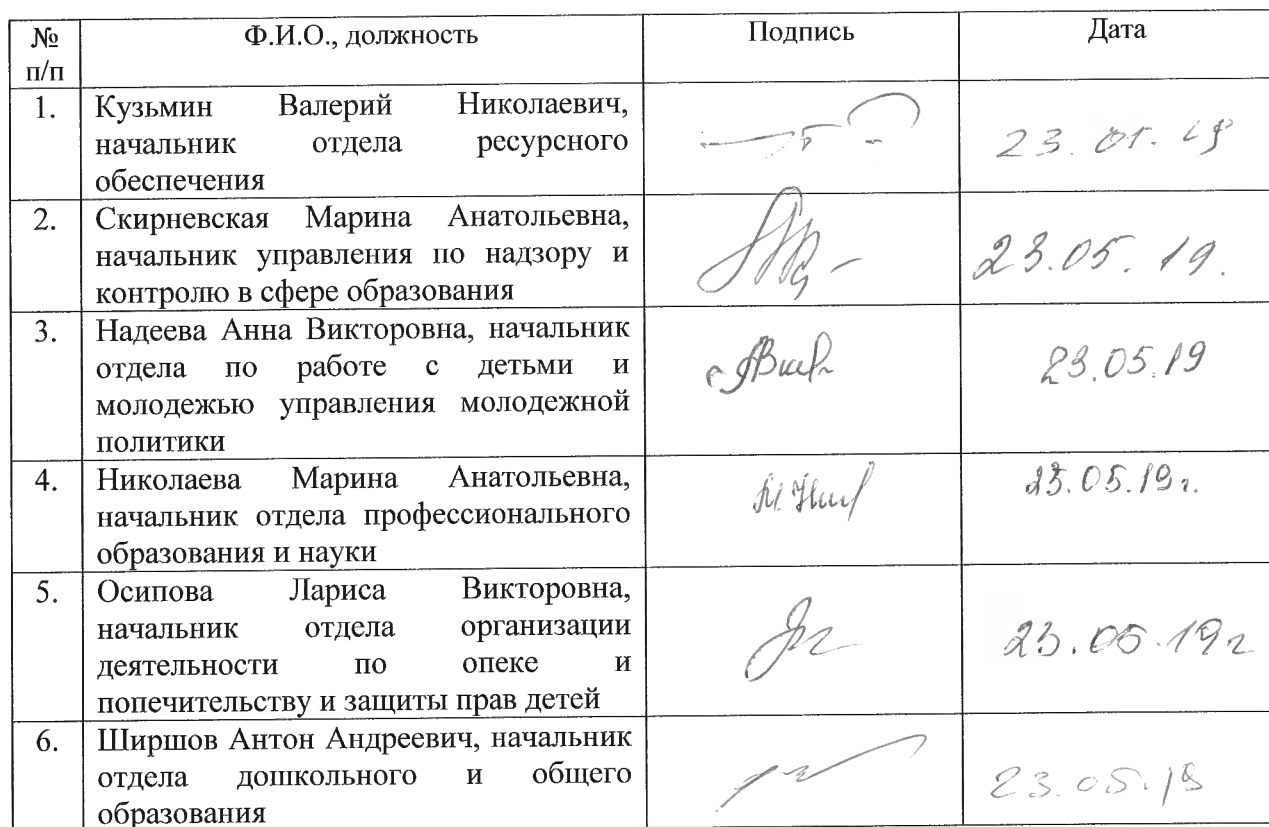 № Ф.И.О., должность Подпись Дата
п/п
1. Кузьмин Валерий Николаевич,
начальник отдела ресурсного
обеспечения
23.
2. Скирневская Марина Анатольевна,
начальник управления по надзору и
контролю в сфере образования
23.05.19.
3. Надеева Анна Викторовна, начальник
отдела по работе с детьми и
молодежью управления молодежной
политики
23.05.19
4. Николаева Марина Анатольевна,
начальник отдела профессионального
образования и науки
23.05.19г.
5. Осипова Лариса Викторовна,
начальник отдела организации
деятельности по опеке и
попечительству и защиты прав детей
23.05.19г
6. Ширшов Антон Андреевич, начальник
отдела дошкольного и общего
образования
23.05.19